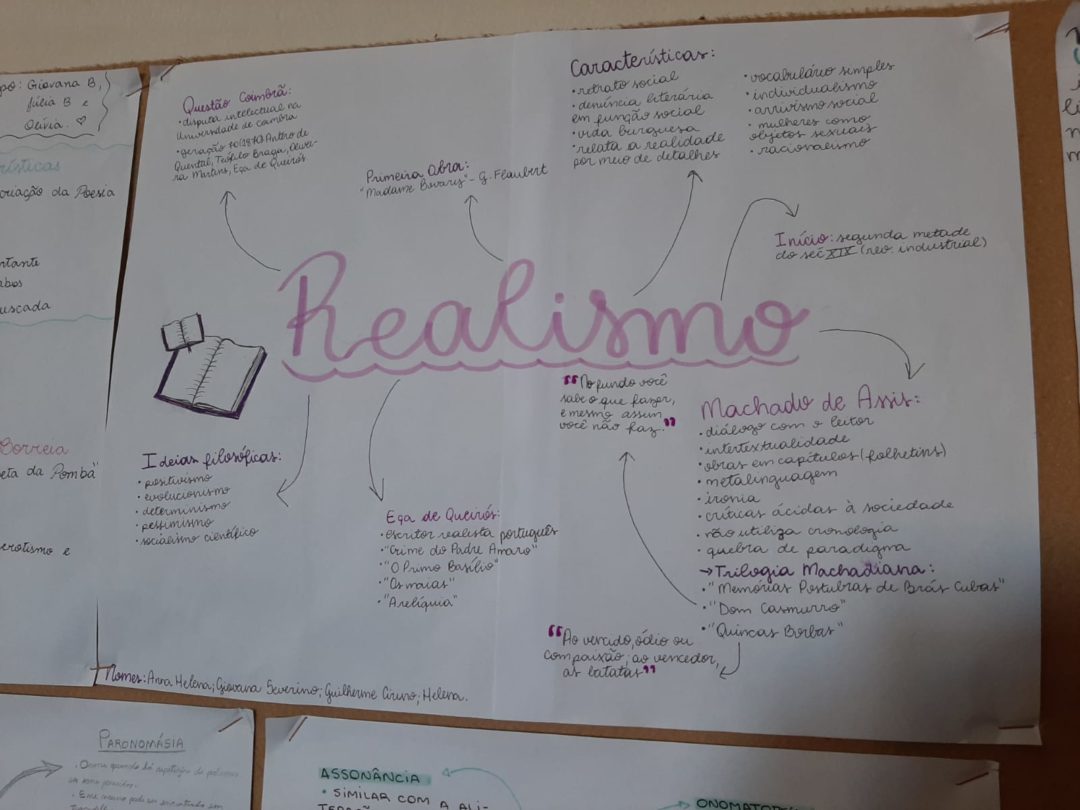 Giovana B,
Júlia B e
Olívia. ♡
Poesia
Correia
da Pomba"
erotismo e
Questão Coimbrã:
• disputa intelectual na
Universidade de Coimbra
• geração 70(1870) Antro de
Quental, Teófilo Braga, Olivei-
ra Martins, Eça de Queirós
Primeira Obra:
"Madame Bovary" - G. Flaubert
Características:
• retrato social
• denúncia literária
em função social
• vida burguesa
• relata a realidade
por meio de detalhes
• vocabulário simples
• individualismo
• arrivismo social
• mulheres como
objetos sexuais
• racionalismo
Início: segunda metade
do séc XIX (rev. industrial)
Realismo
"No fundo você
sabe o que fazer,
e mesmo assim
você não faz."
Machado de Assis:
• diálogo com o leitor
• intertextualidade
• obras em capítulos (folhetins)
• metalinguagem
• ironia
• críticas ácidas à sociedade
• não utiliza cronologia
• quebra de paradigma
→ Trilogia Machadiana:
• "Memórias Postubras de Brás Cubas"
• "Dom Casmurro"
• "Quincas Borbas"
Ideias filosóficas:
• positivismo
• evolucionismo
• determinismo
• pessimismo
• socialismo científico
Eça de Queirós:
• escritor realista português
• "Crime do Padre Amaro"
• "O Primo Basílio"
• "Os maias"
• "Arelíquia"
"Ao vencido, ódio ou
compaixão; ao vencedor,
as batatas"
Nomes: Anna Helena; Giovana Severino; Guilherme Bruno, Helena.
PARONOMÁSIA
ASSONÂNCIA
• SIMILAR COM A ALI-